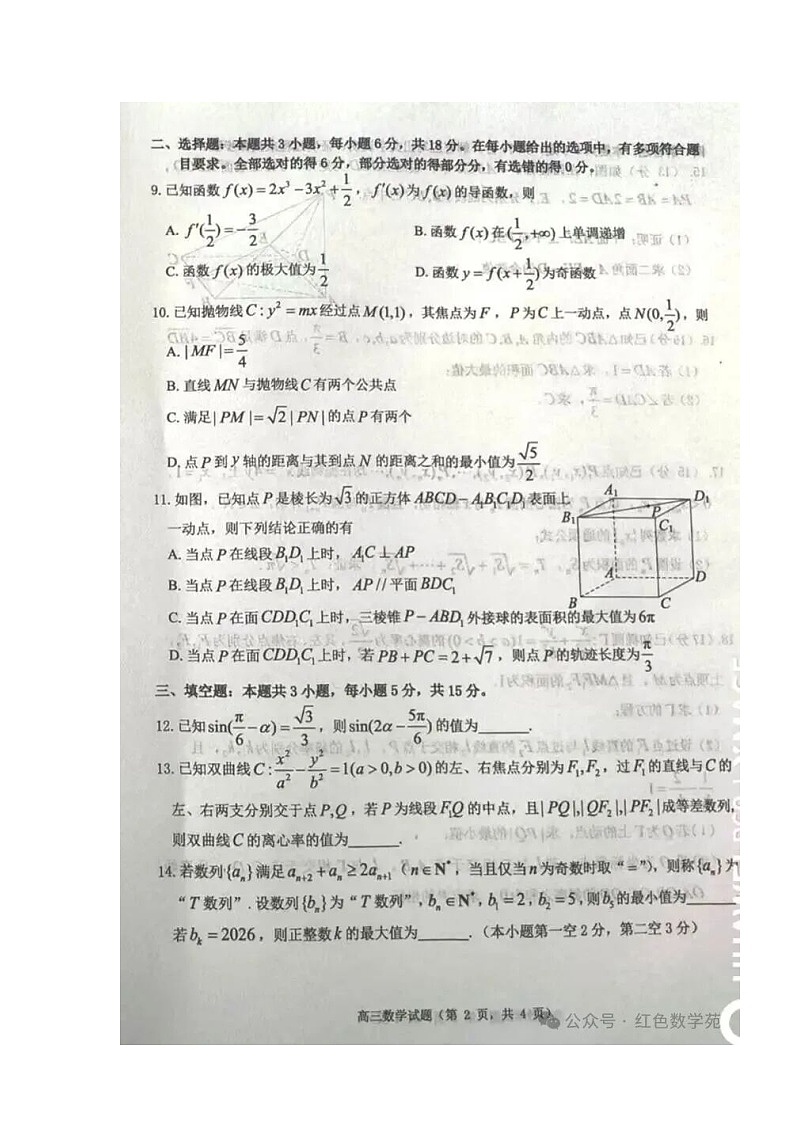 二、选择题：本题共3小题，每小题6分，共18分。在每小题给出的选项中，有多项符合题
目要求。全部选对的得6分，部分选对的得部分分，有选错的得0分。
9. 已知函数 f(x)=2x³-3x²+1/2，f′(x)为f(x)的导函数，则
A. f′(1/2)=-3/2 B. 函数f(x)在(1/2,+∞)上单调递增
C. 函数f(x)的极大值为1/2 D. 函数y=f(x+1/2)为奇函数
10. 已知抛物线C:y²=mx经过点M(1,1)，其焦点为F，P为C上一动点，点N(0,1/2)，则
A. |MF|=5/4
B. 直线MN与抛物线C有两个公共点
C. 满足|PM|=√2|PN|的点P有两个
D. 点P到y轴的距离与其到点N的距离之和的最小值为√5/2
11. 如图，已知点P是棱长为√3的正方体ABCD-A₁B₁C₁D₁表面上
一动点，则下列结论正确的有
A. 当点P在线段B₁D₁上时，A₁C⊥AP
B. 当点P在线段B₁D₁上时，AP//平面BDC₁
C. 当点P在面CDD₁C₁上时，三棱锥P-ABD₁外接球的表面积的最大值为6π
D. 当点P在面CDD₁C₁上时，若PB+PC=2+√7，则点P的轨迹长度为π/3
A₁ D₁
B₁ P C₁
A D
B C
三、填空题：本题共3小题，每小题5分，共15分。
12. 已知sin(π/6-α)=√3/3，则sin(2α-5π/6)的值为______.
13. 已知双曲线C:x²/a²-y²/b²=1(a>0,b>0)的左、右焦点分别为F₁,F₂，过F₁的直线与C的
左、右两支分别交于点P,Q，若P为线段F₁Q的中点，且|PQ|,|QF₂|,|PF₂|成等差数列，
则双曲线C的离心率的值为______.
14. 若数列{aₙ}满足aₙ₊₂+aₙ≥2aₙ₊₁（n∈N*，当且仅当n为奇数时取“=”），则称{aₙ}为
“T数列”. 设数列{bₙ}为“T数列”，bₙ∈N*，b₁=2，b₂=5，则b₅的最小值为______
若bₖ=2026，则正整数k的最大值为______.（本小题第一空2分，第二空3分）
高三数学试题（第 2 页，共 4 页）
公众号·红色数学苑